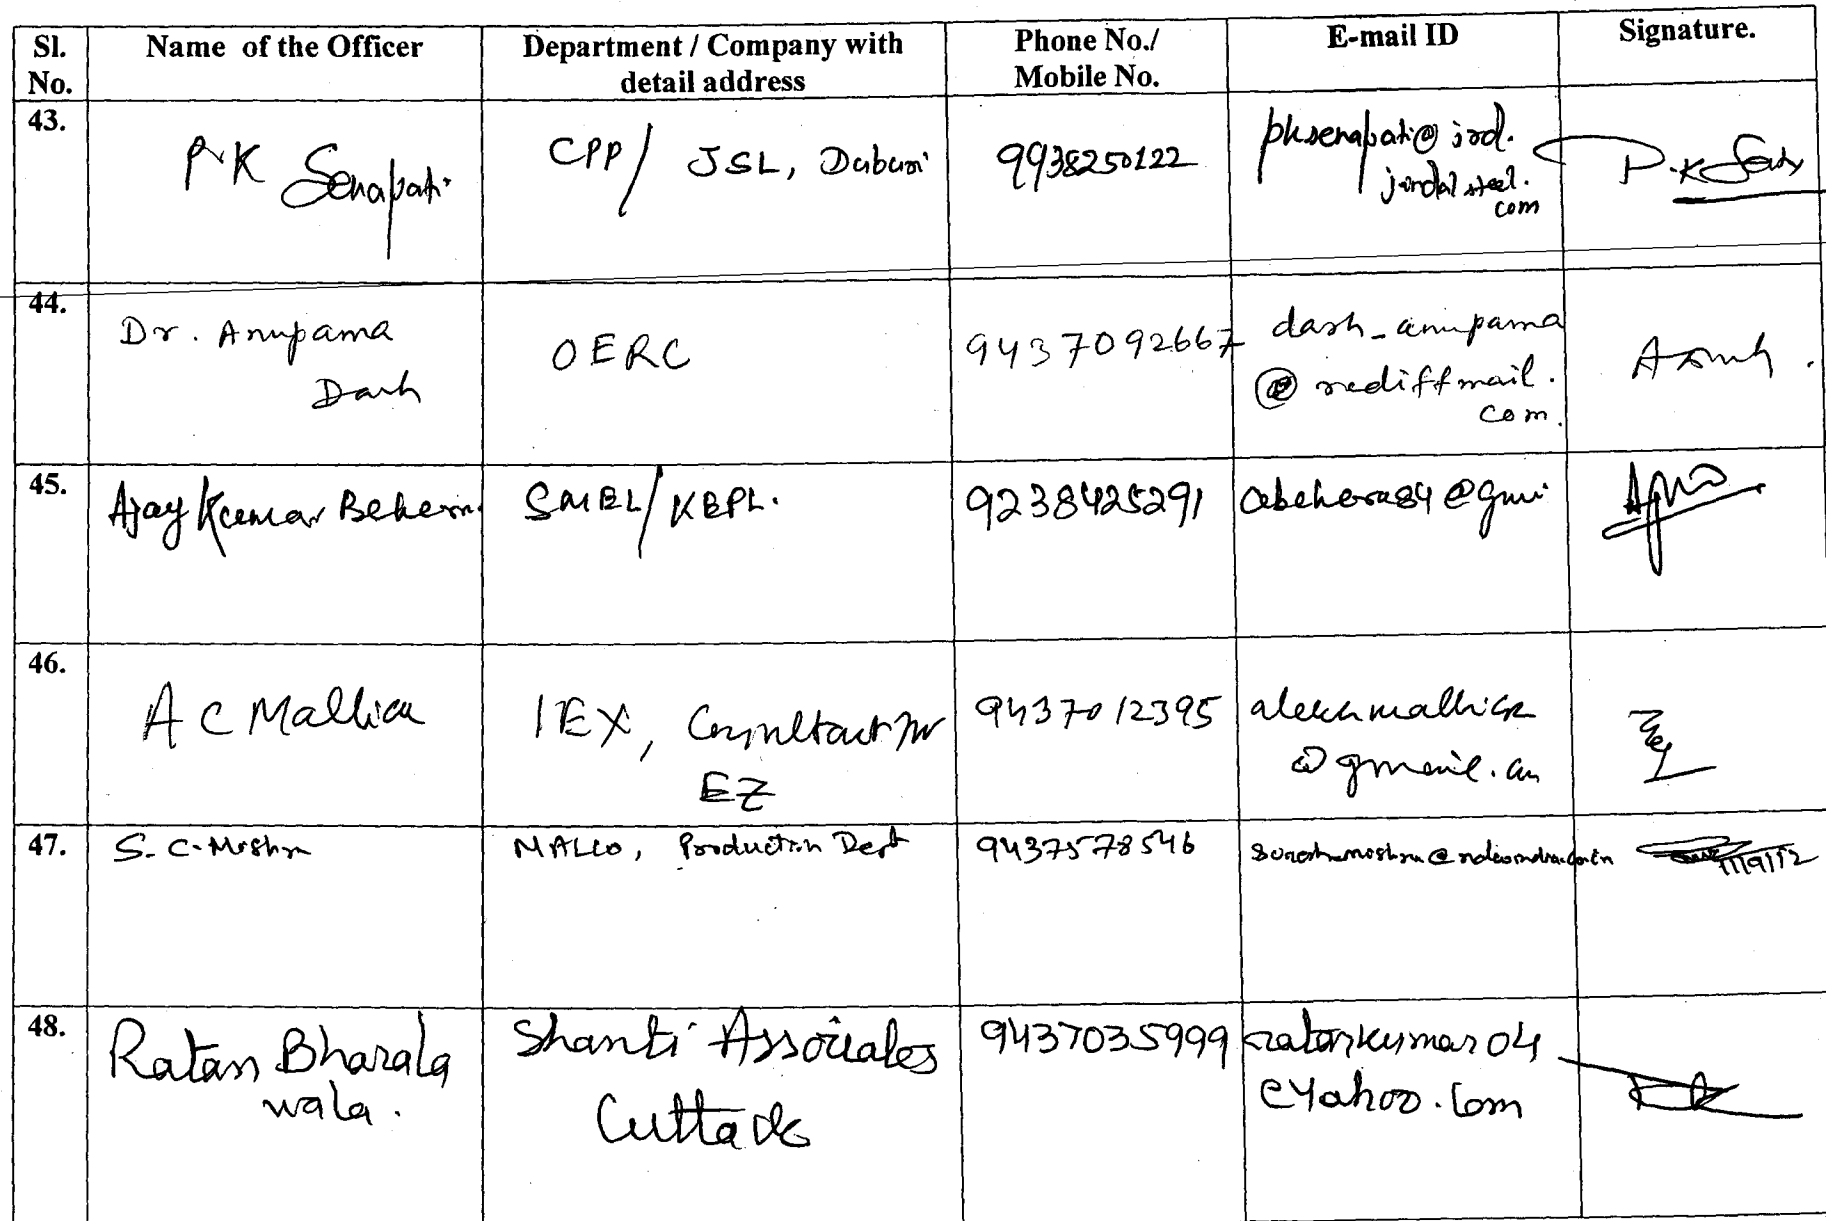 Sl. No. Name of the Officer Department / Company with detail address Phone No./ Mobile No. E-mail ID Signature.
43. P.K Senapati CPP/ JSL, Duburi 9938250122 pksenapati@jrd.
jindalsteel.
com
P.K
44. Dr. Anupama OERC 9437092667 dash_anupama
Dash @rediffmail.
com.
45. Ajay Kumar Behera SMBL/KBPL. 9238425291
46. A C Mallick IEX, Consultant for 9437012395 alekhmallick
EZ @gmail.com
47. S. C. Mishra Production Dept 9437578546
48. Ratan Bharala Shanti Associates 9437035999 ratankumar04
wala. Cuttack @Yahoo.Com